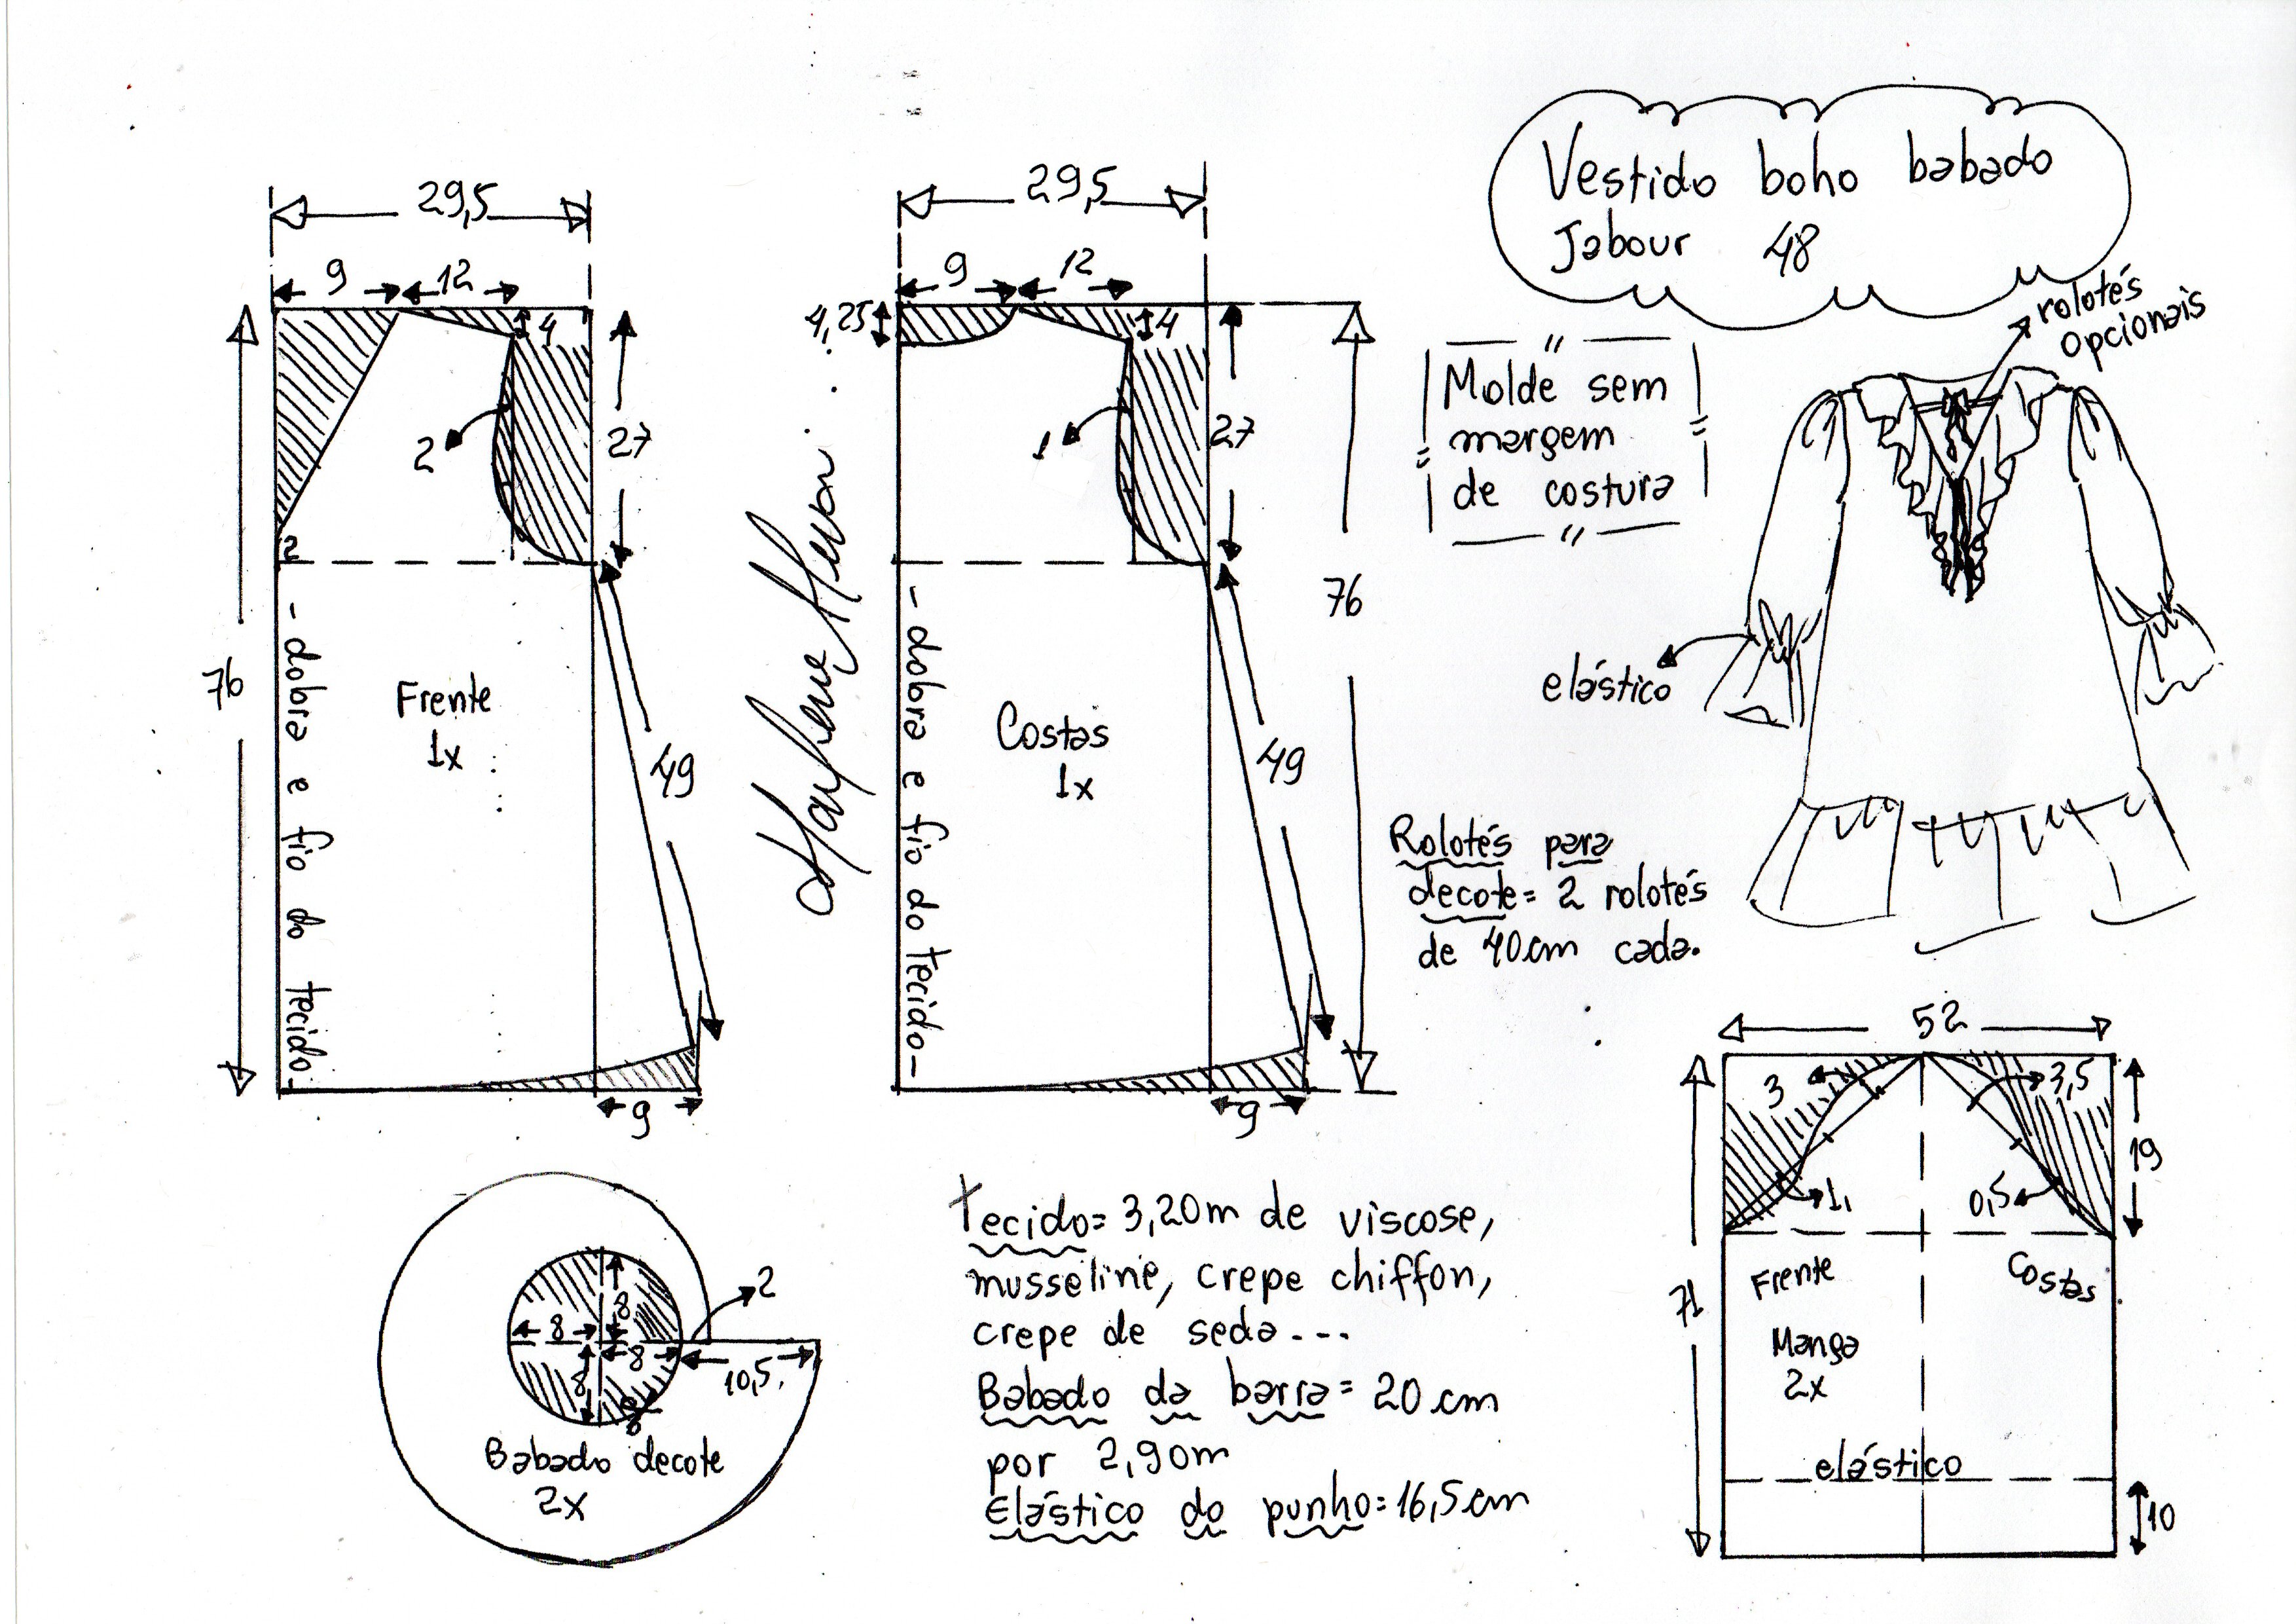 Vestido boho babado
Jabour 48
rolotés
opcionais
Molde sem
margem
de costura
elástico
Rolotés para
decote= 2 rolotés
de 40cm cada.
29,5
9
12
4
2
27
2
76
- dobra e fio do tecido-
Frente
1x
49
9
Marlene Mukai
29,5
9
12
4,25
4
1
27
76
- dobra e fio do tecido-
Costas
1x
49
9
2
8
8
8
8
8
10,5
Babado decote
2x
tecido= 3,20m de viscose,
musseline, crepe chiffon,
crepe de seda---
Babado da barra= 20 cm
por 2,90m
Elástico do punho=16,5cm
52
3
3,5
19
1
0,5
71
Frente
Costas
Manga
2x
elástico
10